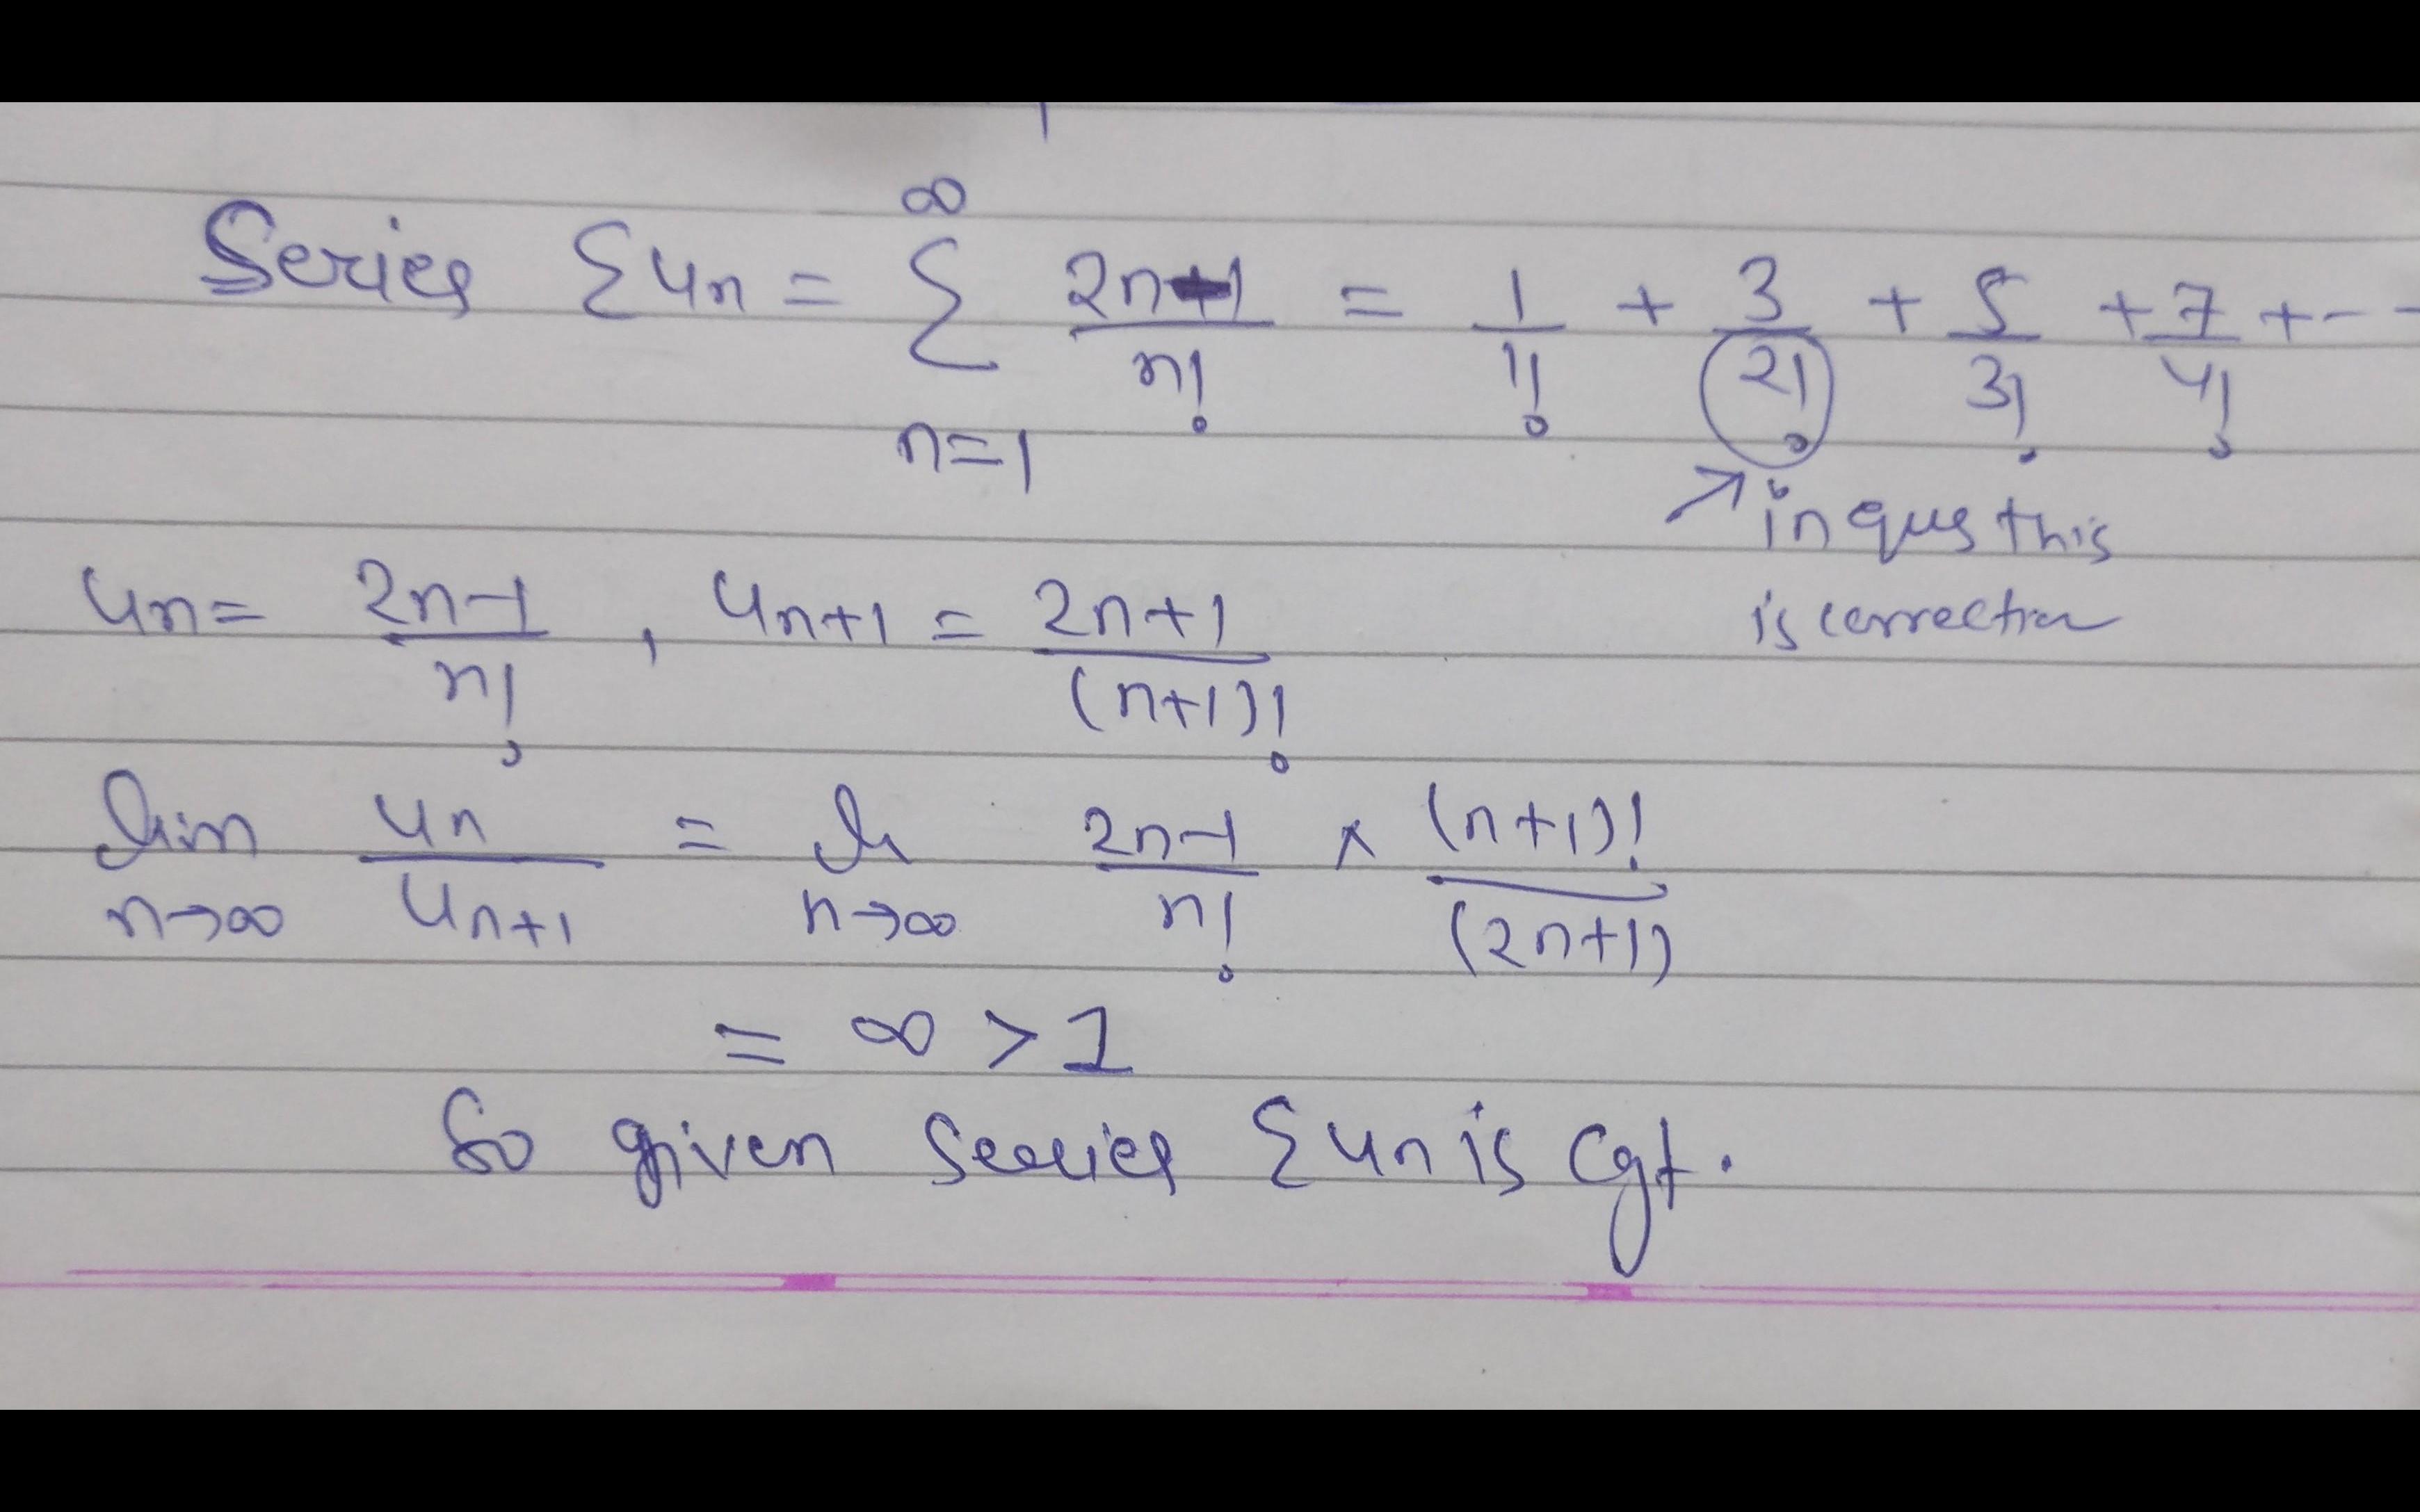 Series Σun = ∞Σn=1 2n-1/n! = 1/1! + 3/2! + 5/3! + 7/4! + - -
in ques this
is correction
un = 2n-1/n! , un+1 = 2n+1/(n+1)!
lim n→∞ un/un+1 = lt n→∞ 2n-1/n! × (n+1)!/(2n+1)
= ∞ > 1
So given series Σun is Cgt.